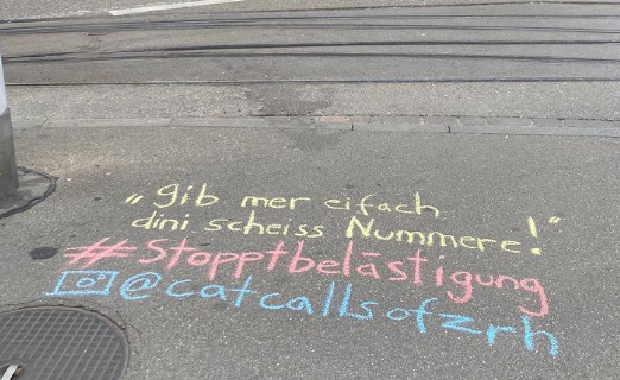 „gib mer eifach
dini scheiss Nummere!“
#Stopptbelästigung
@catcallsofzrh